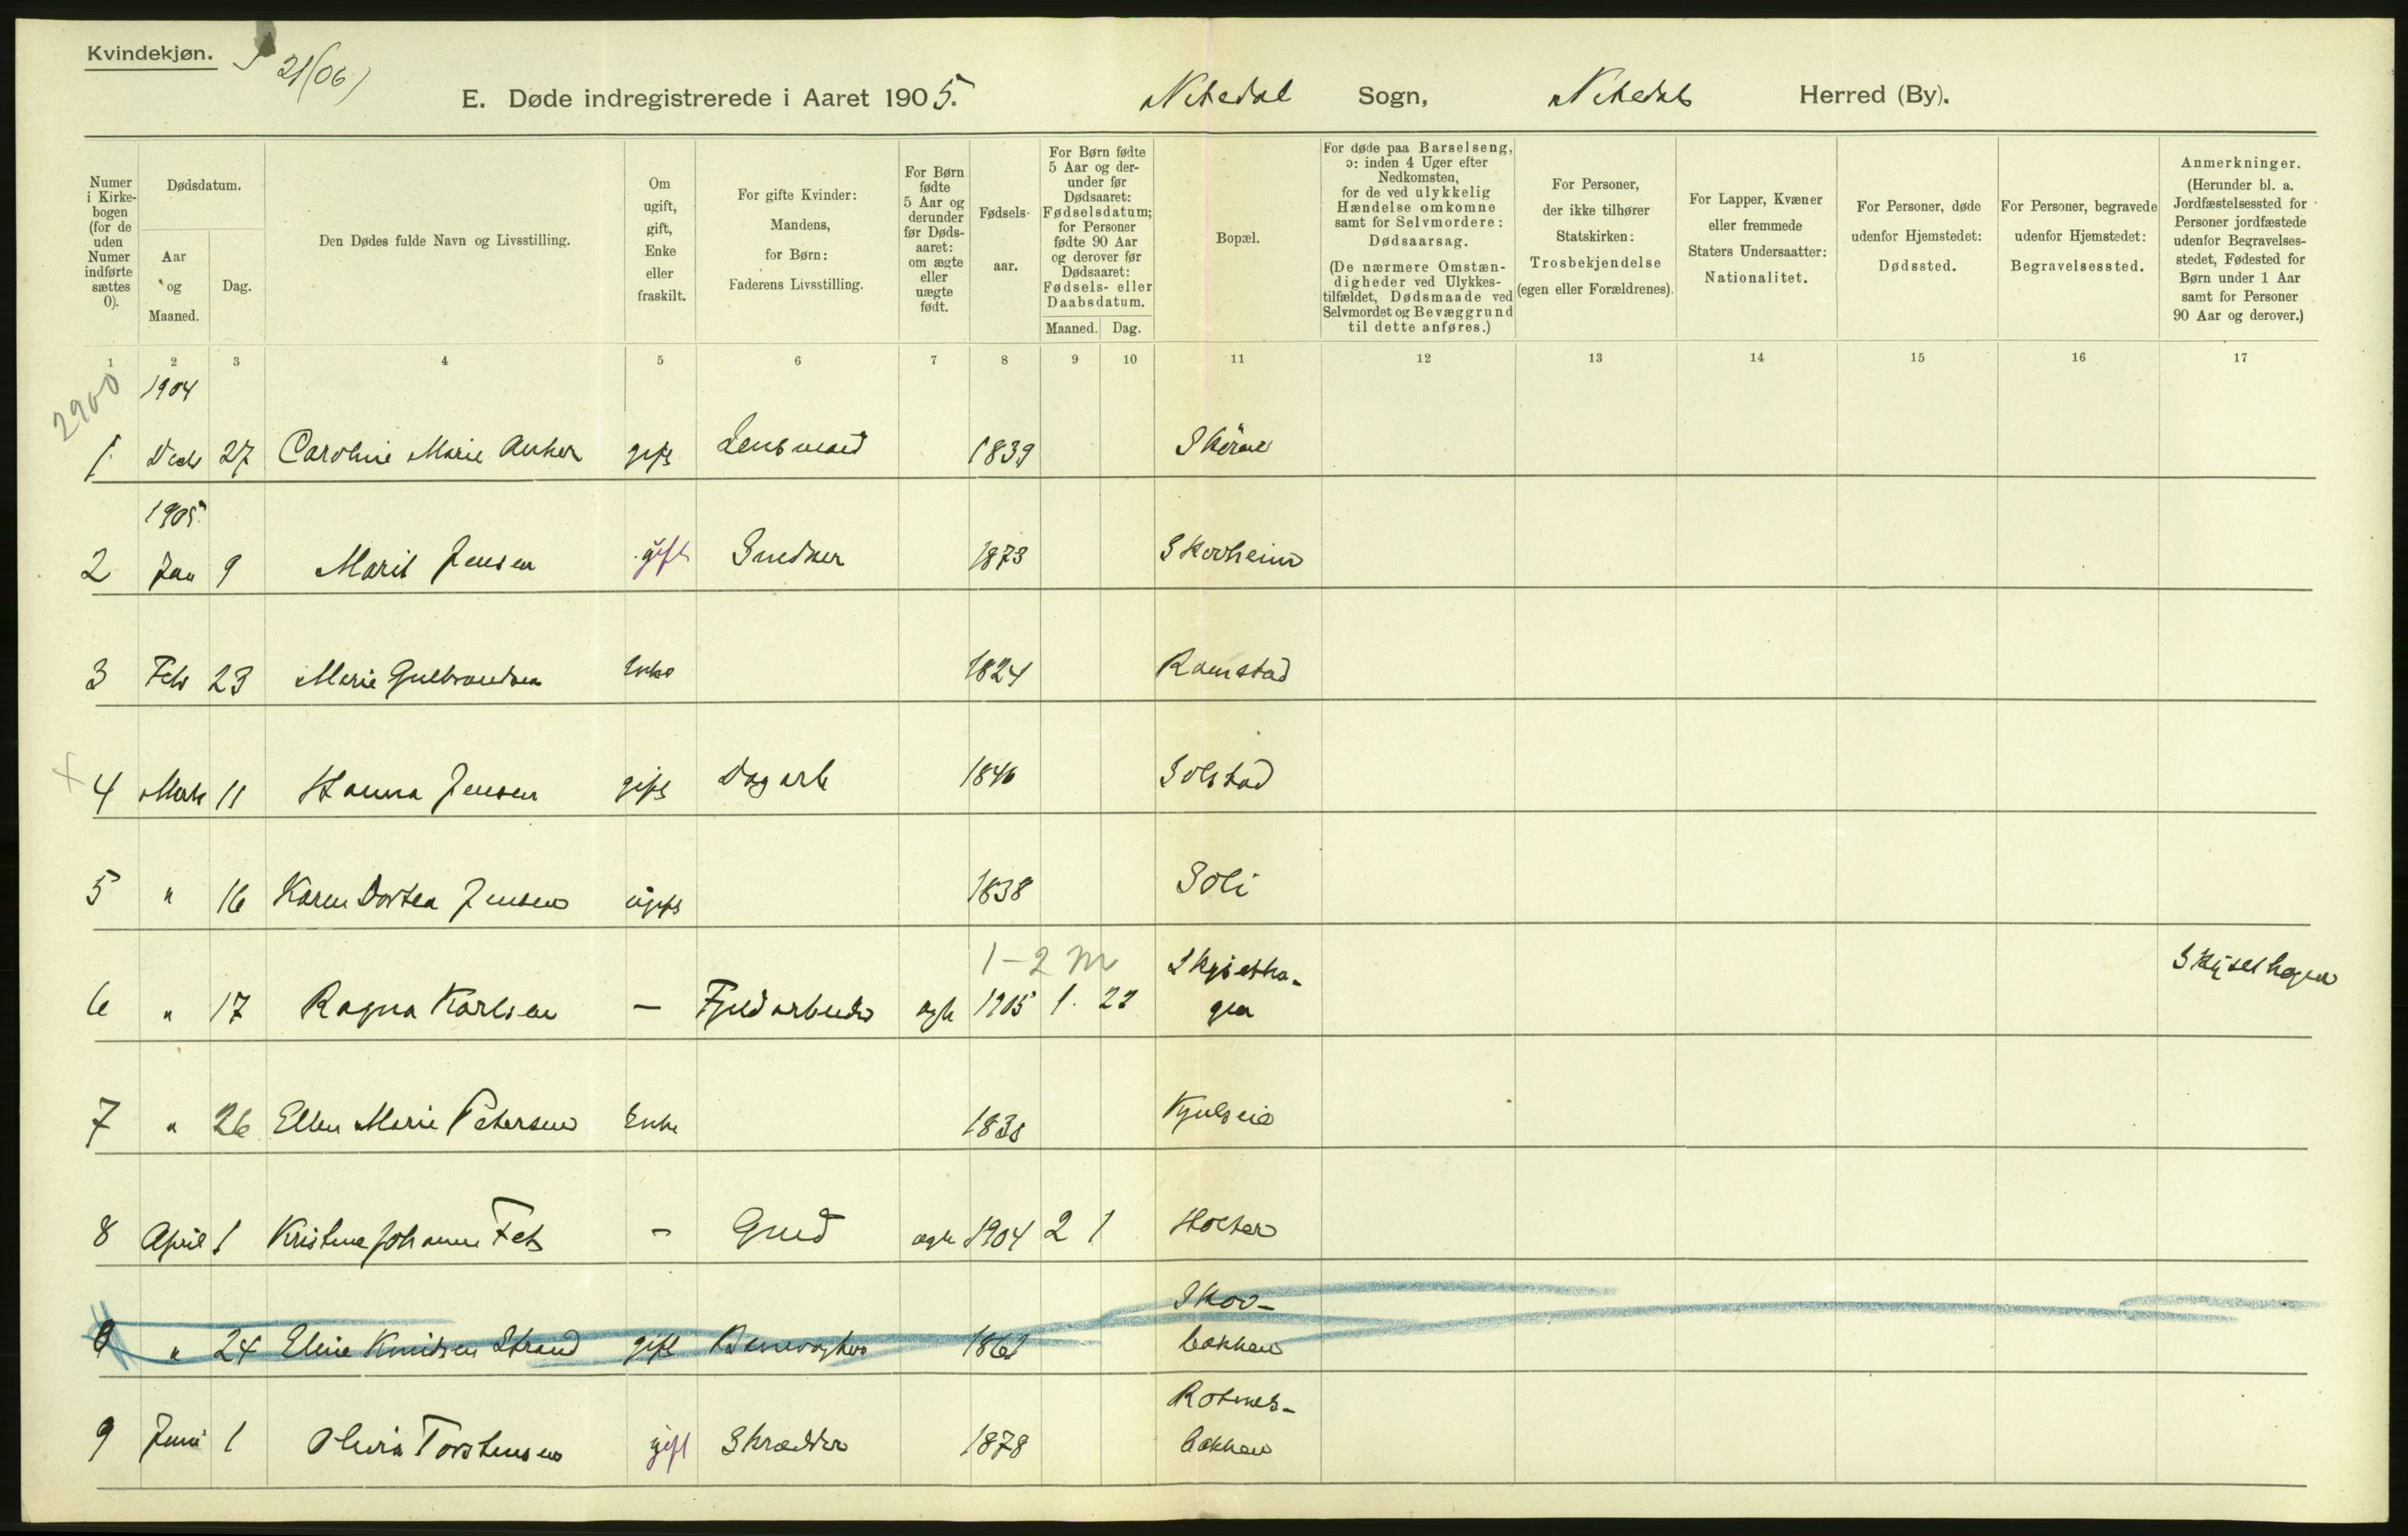 Kvindekjøn.
21/06
E. Døde indregistrerede i Aaret 1905. Nitedal Sogn, Nitedals Herred (By).
Numer i Kirke-bogen (for de uden Numer indførte sættes 0).
Dødsdatum.
Aar og Maaned.
Dag.
Den Dødes fulde Navn og Livsstilling.
Om ugift, gift, Enke eller fraskilt.
For gifte Kvinder: Mandens, for Børn: Faderens Livsstilling.
For Børn fødte 5 Aar og derunder før Døds-aaret: om ægte eller uægte født.
Fødsels-aar.
For Børn fødte 5 Aar og der-under før Dødsaaret: Fødselsdatum; for Personer fødte 90 Aar og derover før Dødsaaret: Fødsels- eller Daabsdatum.
Maaned. Dag.
Bopæl.
For døde paa Barselseng, ɔ: inden 4 Uger efter Nedkomsten, for de ved ulykkelig Hændelse omkomne samt for Selvmordere: Dødsaarsag.
(De nærmere Omstæn-digheder ved Ulykkes-tilfældet, Dødsmaade ved Selvmordet og Bevæggrund til dette anføres.)
For Personer, der ikke tilhører Statskirken: Trosbekjendelse (egen eller Forældrenes).
For Lapper, Kvæner eller fremmede Staters Undersaatter: Nationalitet.
For Personer, døde udenfor Hjemstedet: Dødssted.
For Personer, begravede udenfor Hjemstedet: Begravelsessted.
Anmerkninger.
(Herunder bl. a. Jordfæstelsessted for Personer jordfæstede udenfor Begravelses-stedet, Fødested for Børn under 1 Aar samt for Personer 90 Aar og derover.)
1 2 3 4 5 6 7 8 9 10 11 12 13 14 15 16 17
2900
1904
1 Decb 27 Caroline Marie Anker gift Lensmand 1839
1905
2 Jan 9 Marit Jensen gift Snedker 1873 Skovheim
3 Feb 23 Marie Gulbrandsen Enke 1824 Ramstad
4 Marts 11 Hanna Jensen gift Dagarb 1846 Solstad
5 " 16 Karen Dortea Jensen ugift 1838 Soli
1-2 m Skyset ha-
6 " 17 Ragna Karlsen — Fjeldarbeider ægte 1905 1. 22 gen Skysethagen
7 " 26 Ellen Marie Petersen Enke Kjulseie
8 April 1 Kristine Johanne Fets - Grd ægte 1904 2 1 Holter
Skov-
" 24 Eline Knudsen Strand gift Banevogter bakken
Rotnes-
9 Juni 1 Olivia Torstensen gift Skrædder 1878 bakken